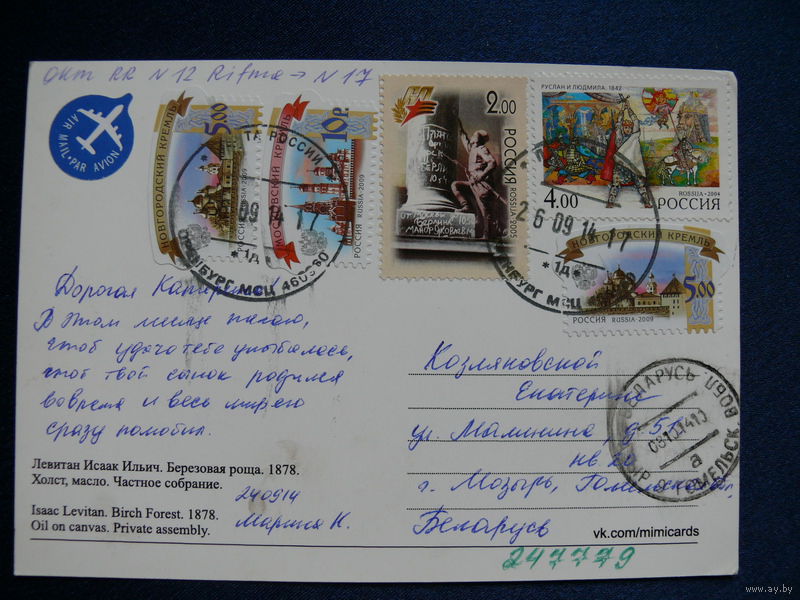 окт RR N 12 Rifma → N 17
AIR MAIL • PAR AVION
НОВГОРОДСКИЙ КРЕМЛЬ
5.00
РОССИЯ RUSSIA 2009
МОСКОВСКИЙ КРЕМЛЬ
10 Р.
РОССИЯ RUSSIA 2009
60
2.00
РОССИЯ RUSSIA 2005
РУСЛАН И ЛЮДМИЛА. 1842
ROSSIJA • 2004
4.00 РОССИЯ
НОВГОРОДСКИЙ КРЕМЛЬ
5.00
РОССИЯ RUSSIA • 2009
ПОЧТА РОССИИ
09 14 17
*1д*
ОРЕНБУРГ МСЦ 460960
26 09 14 17
*1д*
ОРЕНБУРГ МСЦ
Дорогая
В этом месяце желаю,
чтоб удача тебе улыбалась,
чтоб твой сынок родился
вовремя и весь мир его
сразу полюбил.
Левитан Исаак Ильич. Березовая роща. 1878.
Холст, масло. Частное собрание.
240914
Isaac Levitan. Birch Forest. 1878.
Oil on canvas. Private assembly.
Марина К.
Козляновской
Екатерине
ул. Малинина, д. 51
кв.
г. Мозырь, Гомельская
Беларусь
247779
БЕЛАРУСЬ
081014
а
vk.com/mimicards
www.ay.by